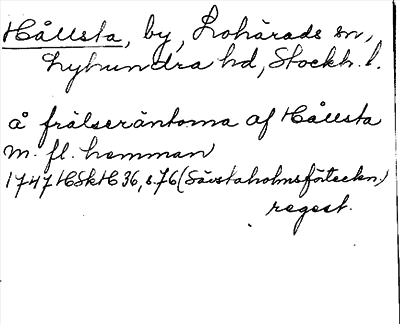 Hållsta, by, Lohärads sn,
Lyhundra hd, Stockh. l.
å frälseräntorna af Hållsta
m. fl. hemman
1747 HSkH 36, s. 76 (Sävstaholmsförteckn.)
regest.